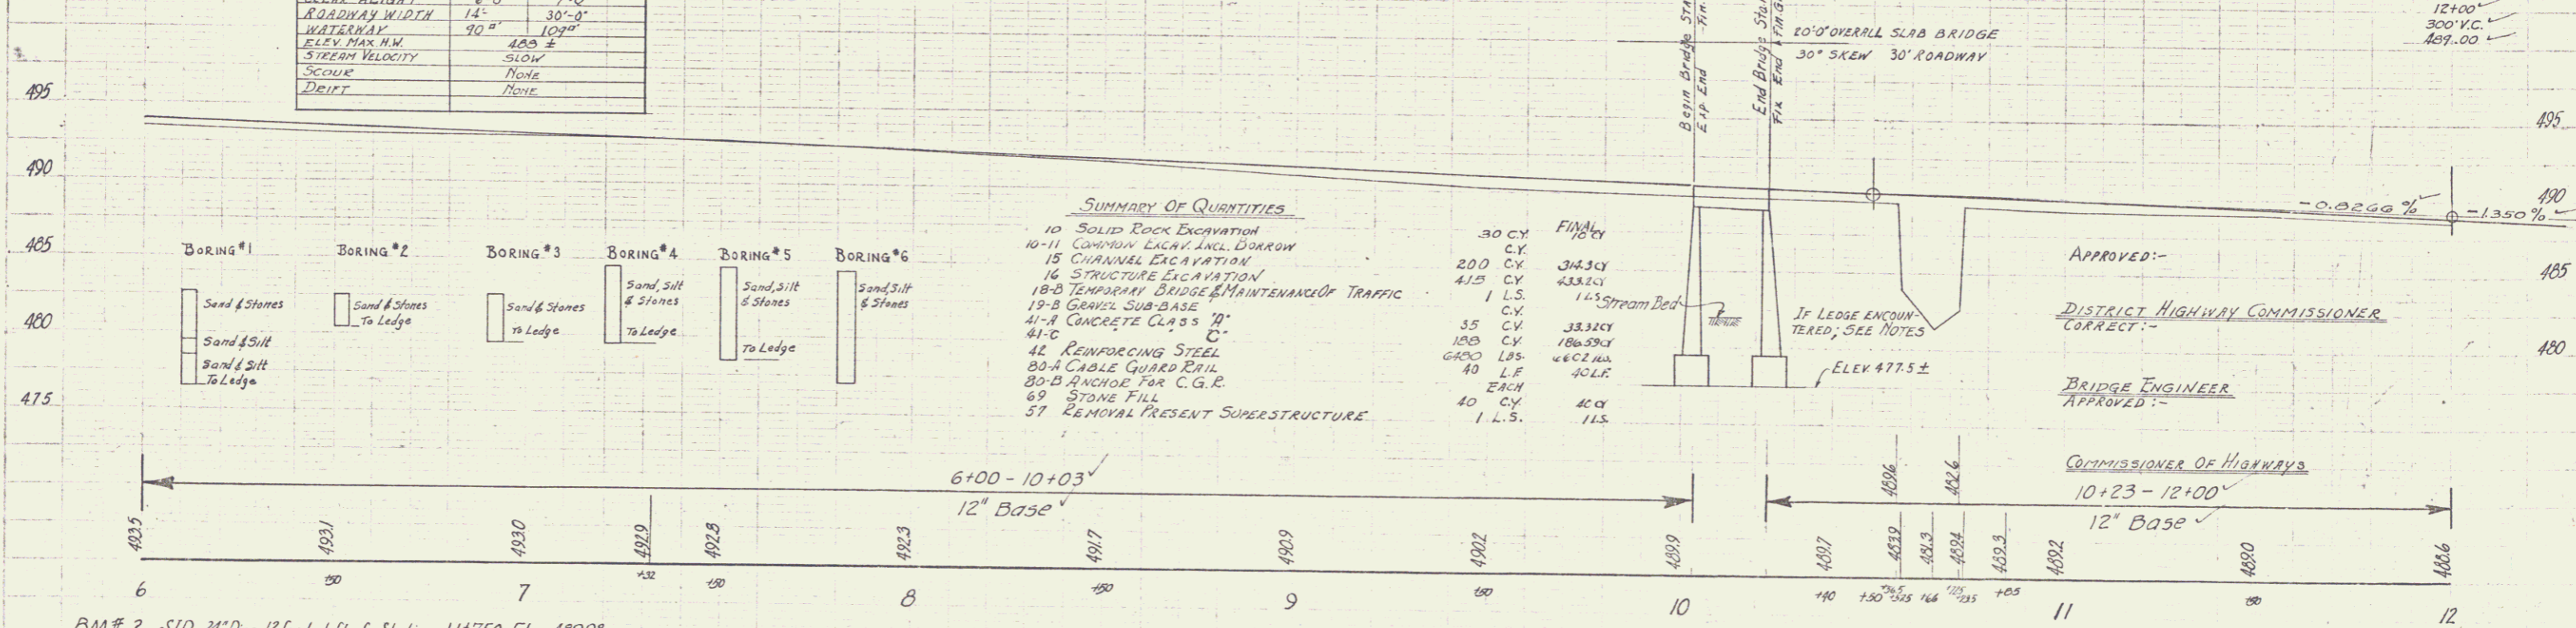 ROADWAY WIDTH 14'- 30'-0"
WATERWAY 90 □' 109□'
ELEV. MAX. H.W. 489 ±
STREAM VELOCITY SLOW
SCOUR NONE
DRIFT NONE
Begin Bridge
Exp. End
End Bridge
Fix End
20'-0" OVERALL SLAB BRIDGE
30° SKEW 30' ROADWAY
12+00
300' V.C.
489.00
495
490
485
480
475
495
490
485
480
-0.8266 %
-1.350 %
BORING #1
Sand & Stones
Sand & Silt
Sand & Silt
To Ledge
BORING #2
Sand & Stones
To Ledge
BORING #3
Sand & Stones
To Ledge
BORING #4
Sand, Silt
& Stones
To Ledge
BORING #5
Sand, Silt
& Stones
To Ledge
BORING #6
Sand, Silt
& Stones
SUMMARY OF QUANTITIES
FINAL
10 SOLID ROCK EXCAVATION 30 C.Y. 10 CY
10-11 COMMON EXCAV. INCL. BORROW C.Y.
15 CHANNEL EXCAVATION 200 C.Y. 314.3 CY
16 STRUCTURE EXCAVATION 415 C.Y. 433.2 CY
18-B TEMPORARY BRIDGE & MAINTENANCE OF TRAFFIC 1 L.S. 1 L.S.
19-B GRAVEL SUB-BASE C.Y.
41-A CONCRETE CLASS "A" 35 C.Y. 33.32 CY
41-C " " "C" 188 C.Y. 186.59 CY
42 REINFORCING STEEL 6480 LBS. 6602 lbs.
80-A CABLE GUARD RAIL 40 L.F. 40 L.F.
80-B ANCHOR FOR C.G.R. EACH
69 STONE FILL 40 C.Y. 40 CY
57 REMOVAL PRESENT SUPERSTRUCTURE 1 L.S. 1 L.S.
Stream Bed
IF LEDGE ENCOUN-
TERED; SEE NOTES
ELEV. 477.5 ±
APPROVED:-
DISTRICT HIGHWAY COMMISSIONER
CORRECT:-
BRIDGE ENGINEER
APPROVED:-
COMMISSIONER OF HIGHWAYS
6+00 - 10+03
12" Base
10+23 - 12+00
12" Base
489.6 482.6
493.5 493.1 493.0 492.9 492.8 492.3 491.7 490.9 490.2 489.9 489.7 483.9 481.3 489.4 489.3 489.2 489.0 488.6
6 +50 7 +32 +50 8 +50 9 +50 10 +40 +50 +66 +85 11 +50 12
BM# 2